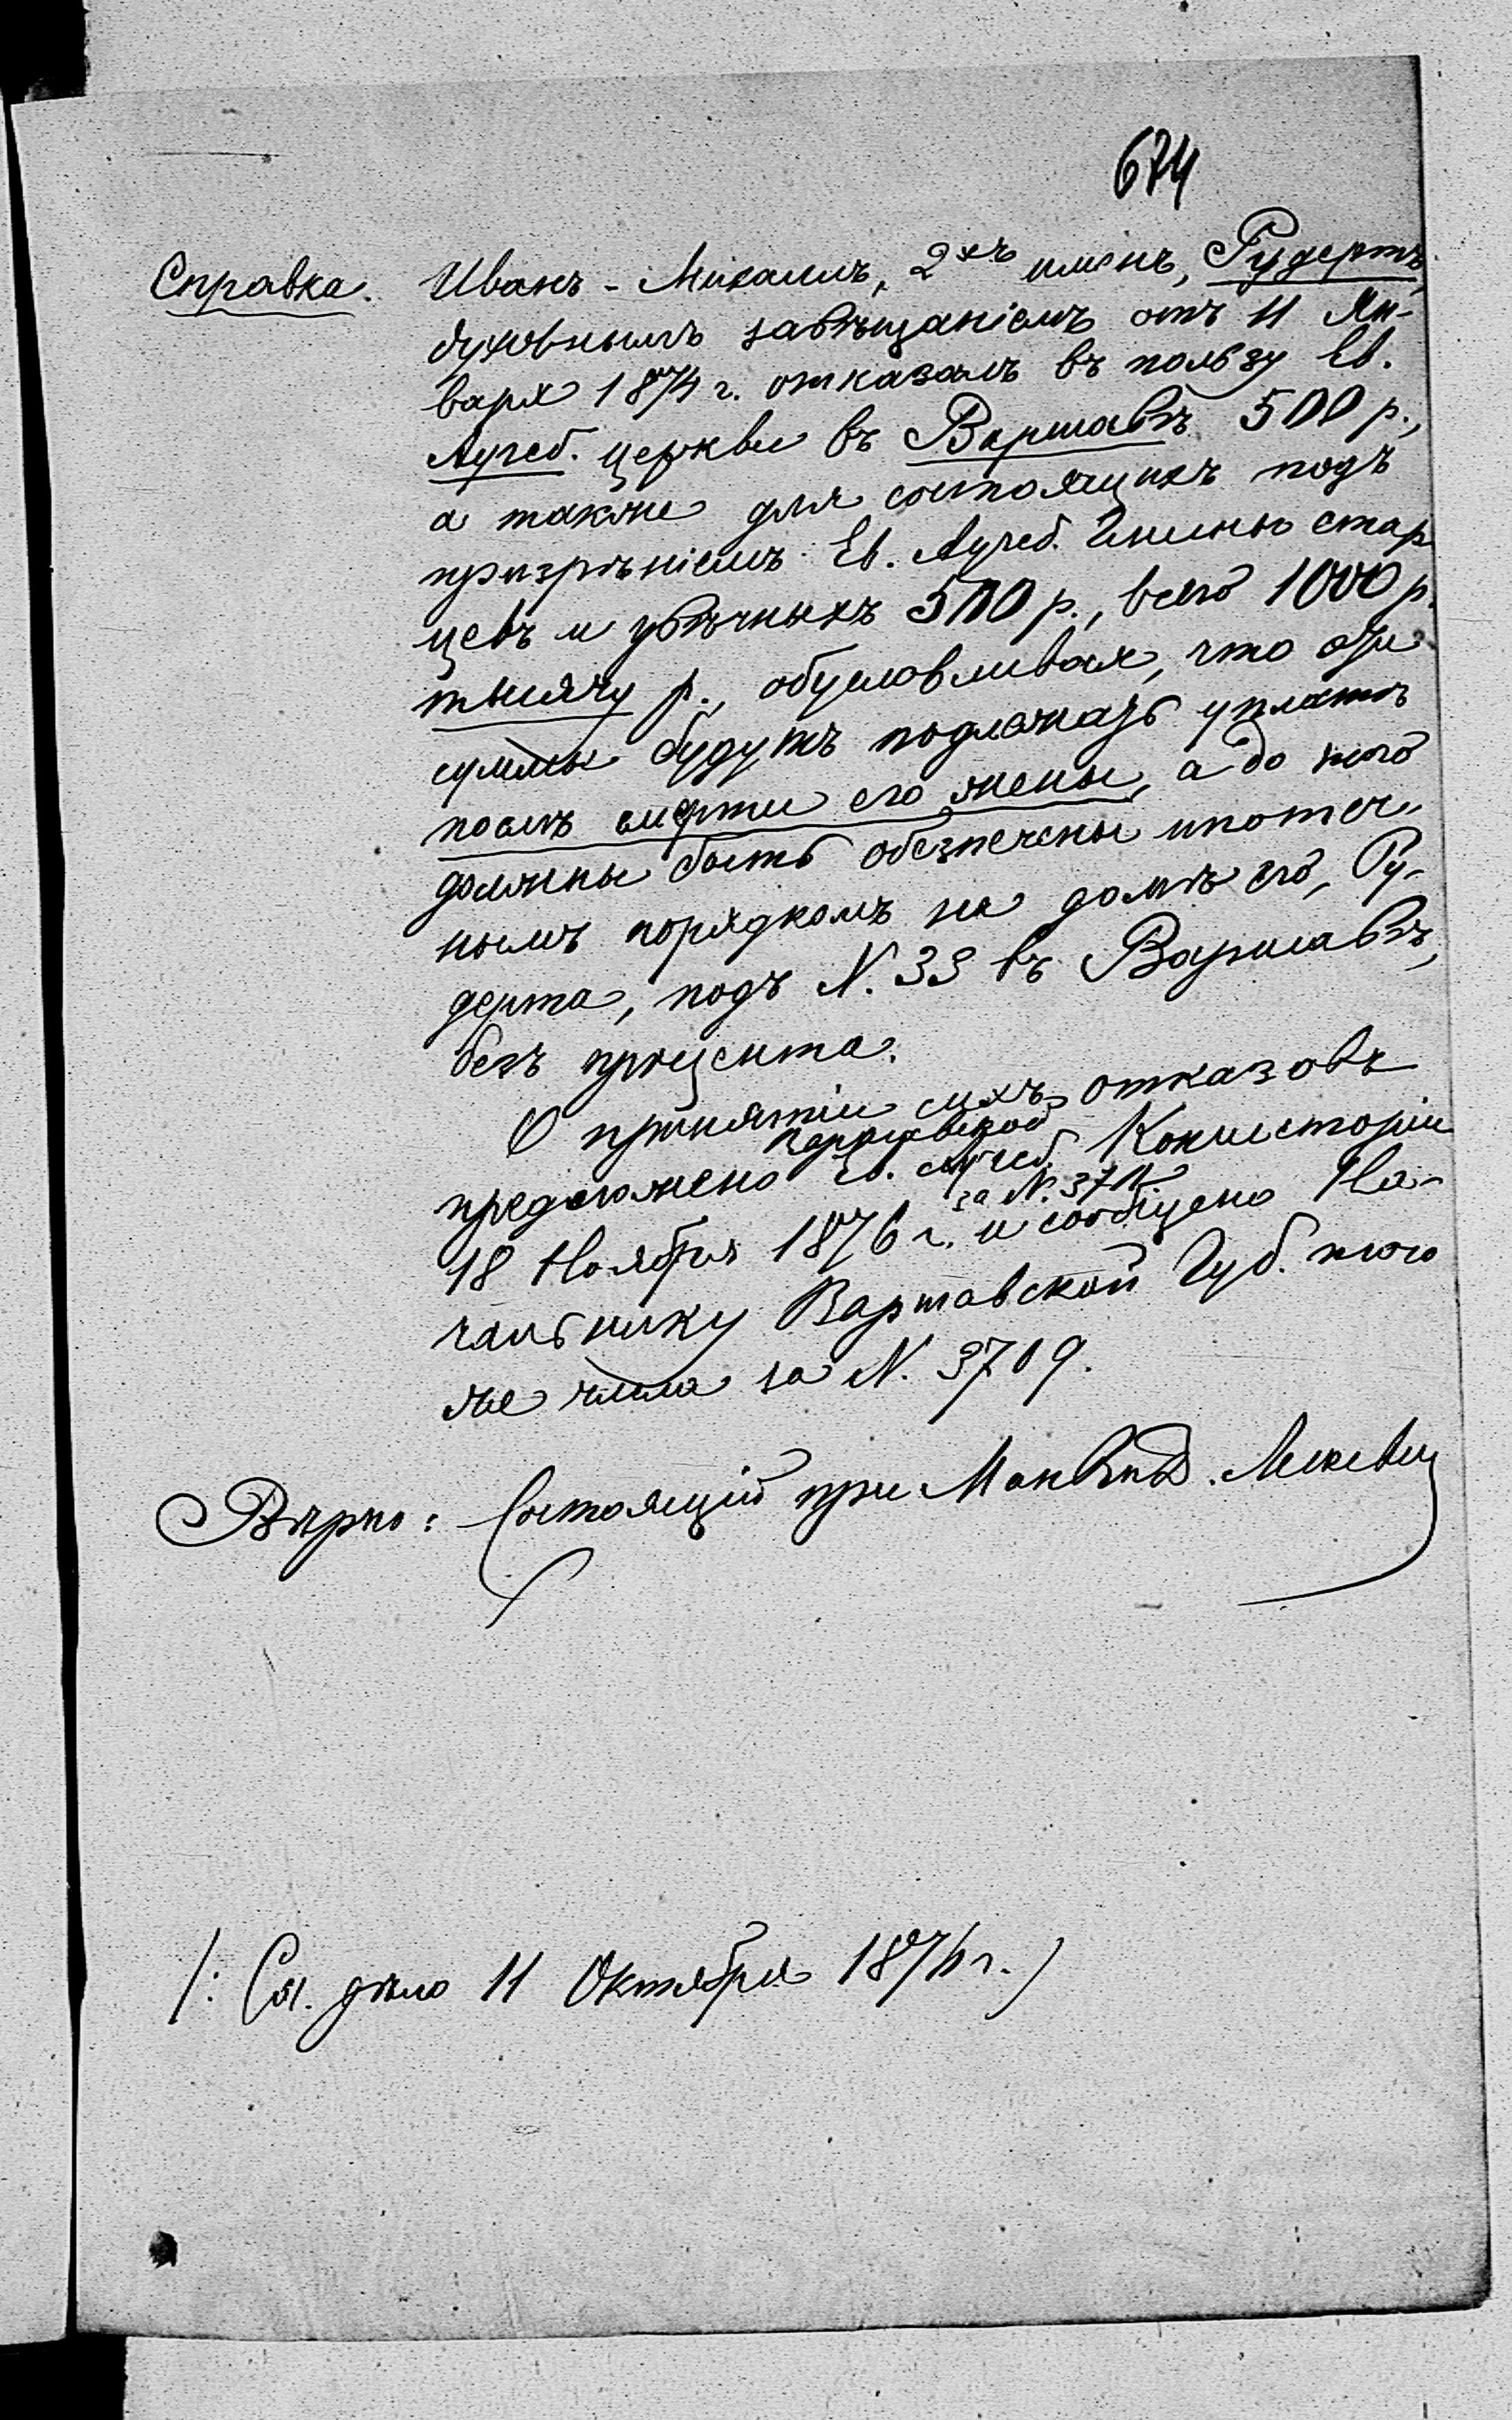 674
Справка. Иванъ-Михаилъ, 2хъ именъ, Рудертъ,
духовнымъ завѣщаніемъ отъ 11 Ян-
варя 1874 г. отказалъ въ пользу Ев.
Аугсб. церкви въ Варшавѣ 500 р.,
а также для состоящихъ подъ
призрѣніемъ Ев. Аугсб. Гмины стар
цевъ и убѣчныхъ 500 р., всего 1000 р.
тысячу р., обусловливая, что эти
суммы будутъ подлежать уплатѣ
послѣ смерти его жены, а до того
должны быть обезпечены ипотеч-
нымъ порядкомъ на домѣ его, Ру-
дерта, подъ N. 33 въ Варшавѣ,
безъ процента.
О принятіи сихъ отказовъ
Варшавской
предложено Ев. Аугсб. Консисторіи
за N. 3711
18 Ноября 1876 г. и сообщено На-
чальнику Варшавской Губ. того
же числа за N. 3709.
Вѣрно: Состоящій при
/: См. дѣло 11 Октября 1876 г.)